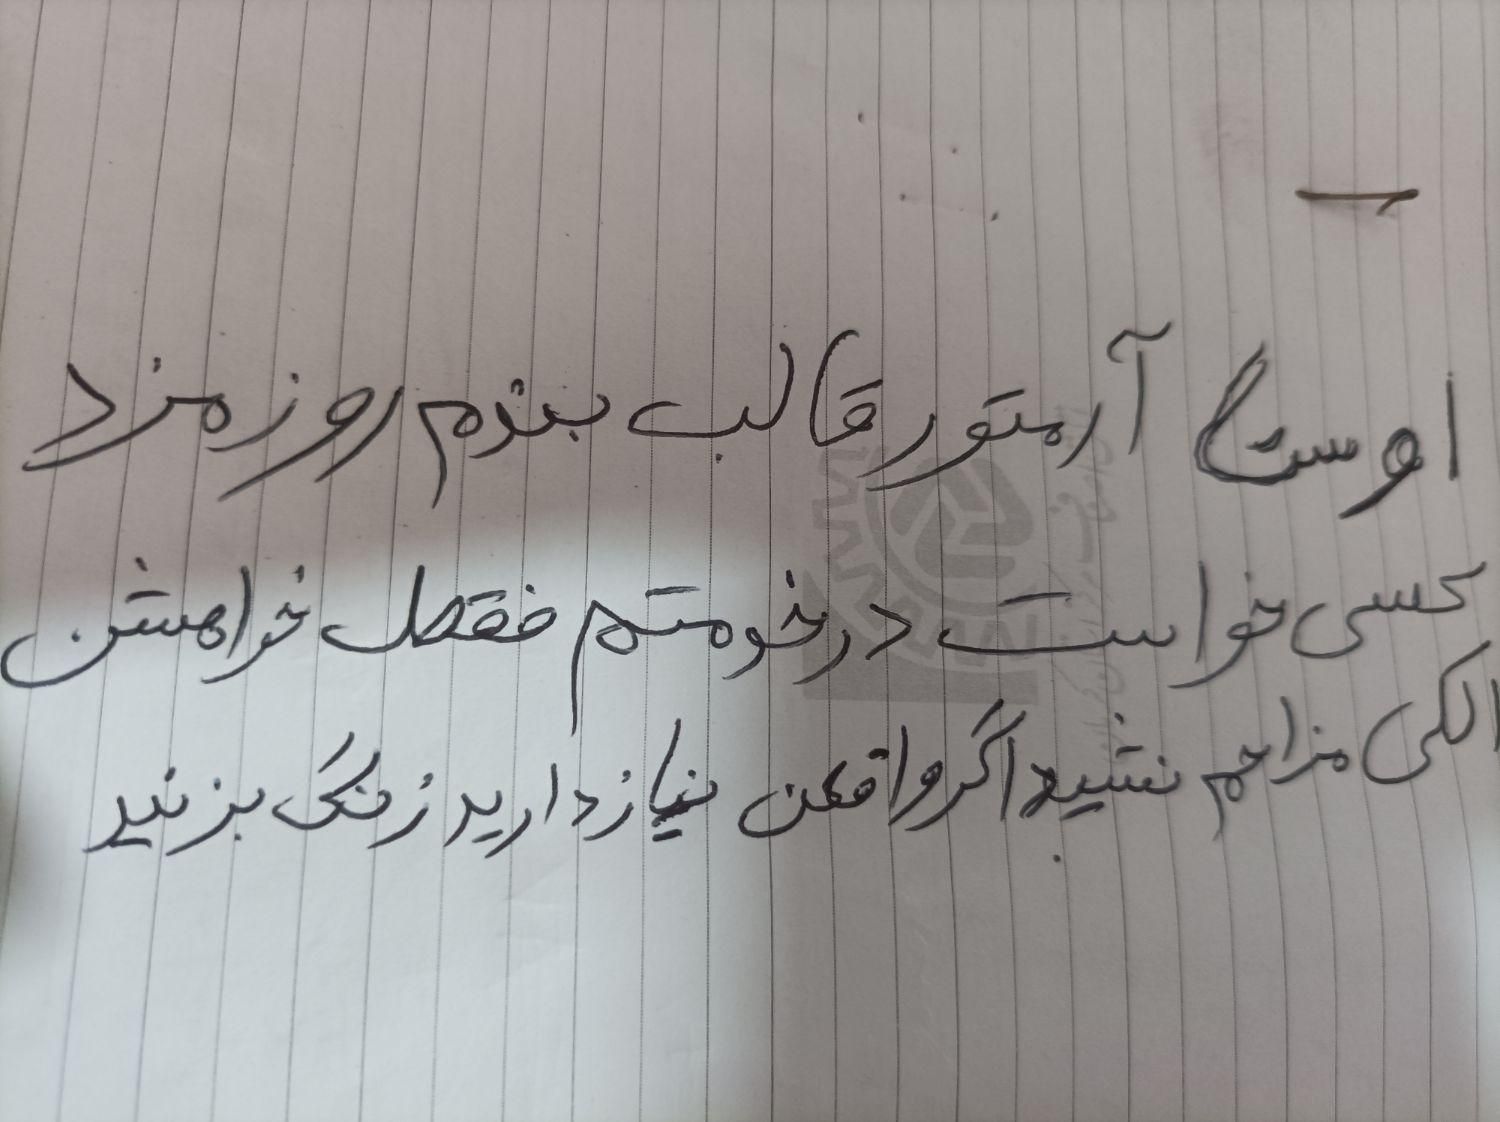 اوستا آرمتور قالب بندم روز مزد
کسی خواست در خومتم فقط خواهشن
الکی مزاحم نشید اگر واقعن نیاز دارید زنگ بزنید